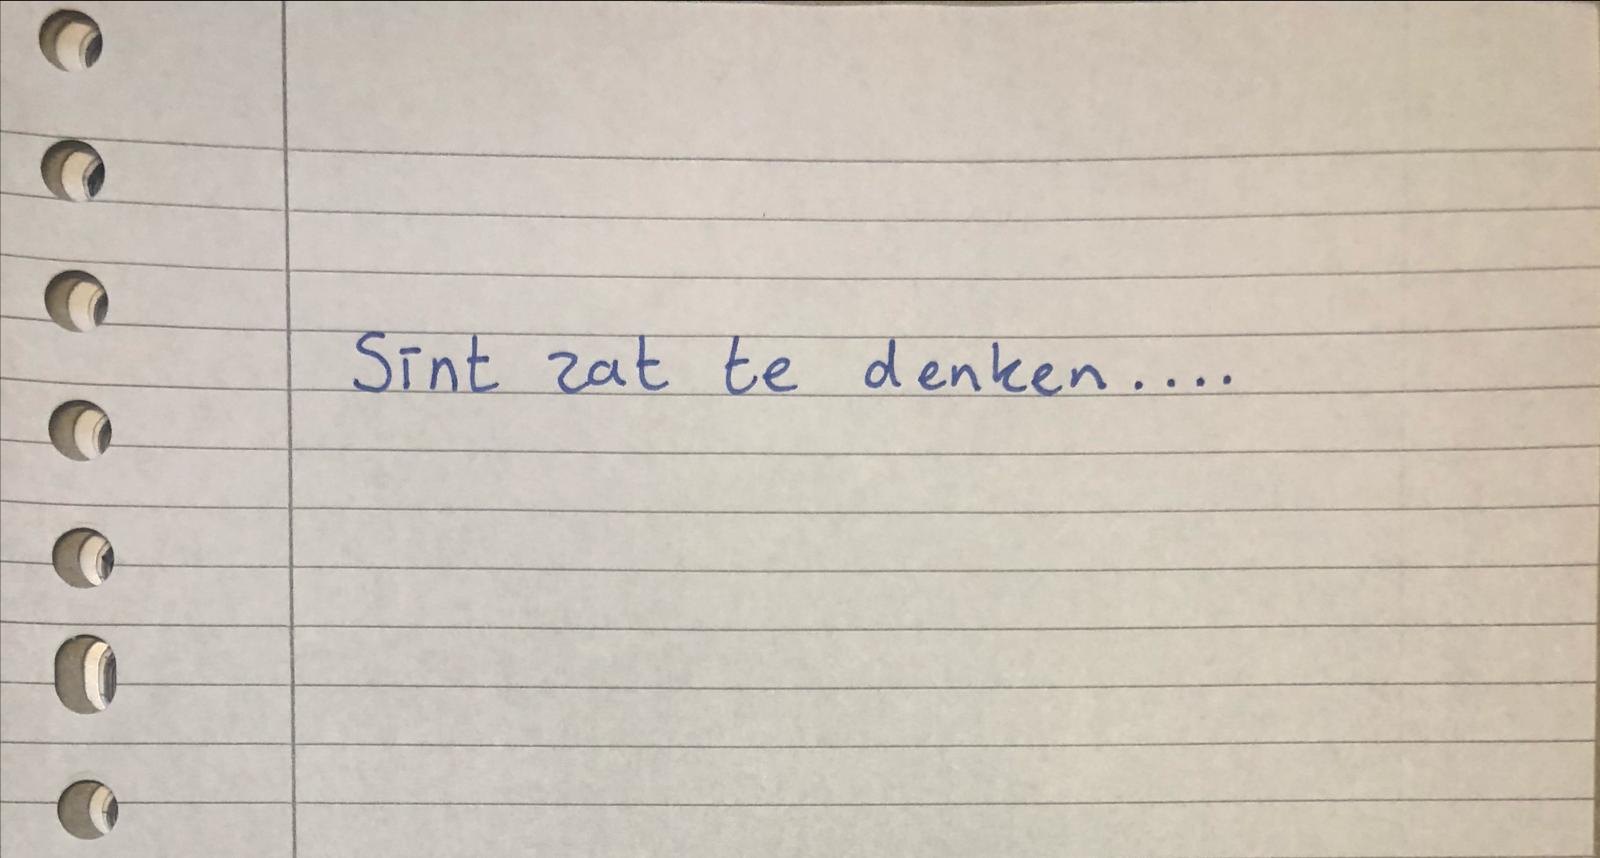 Sint zat te denken....